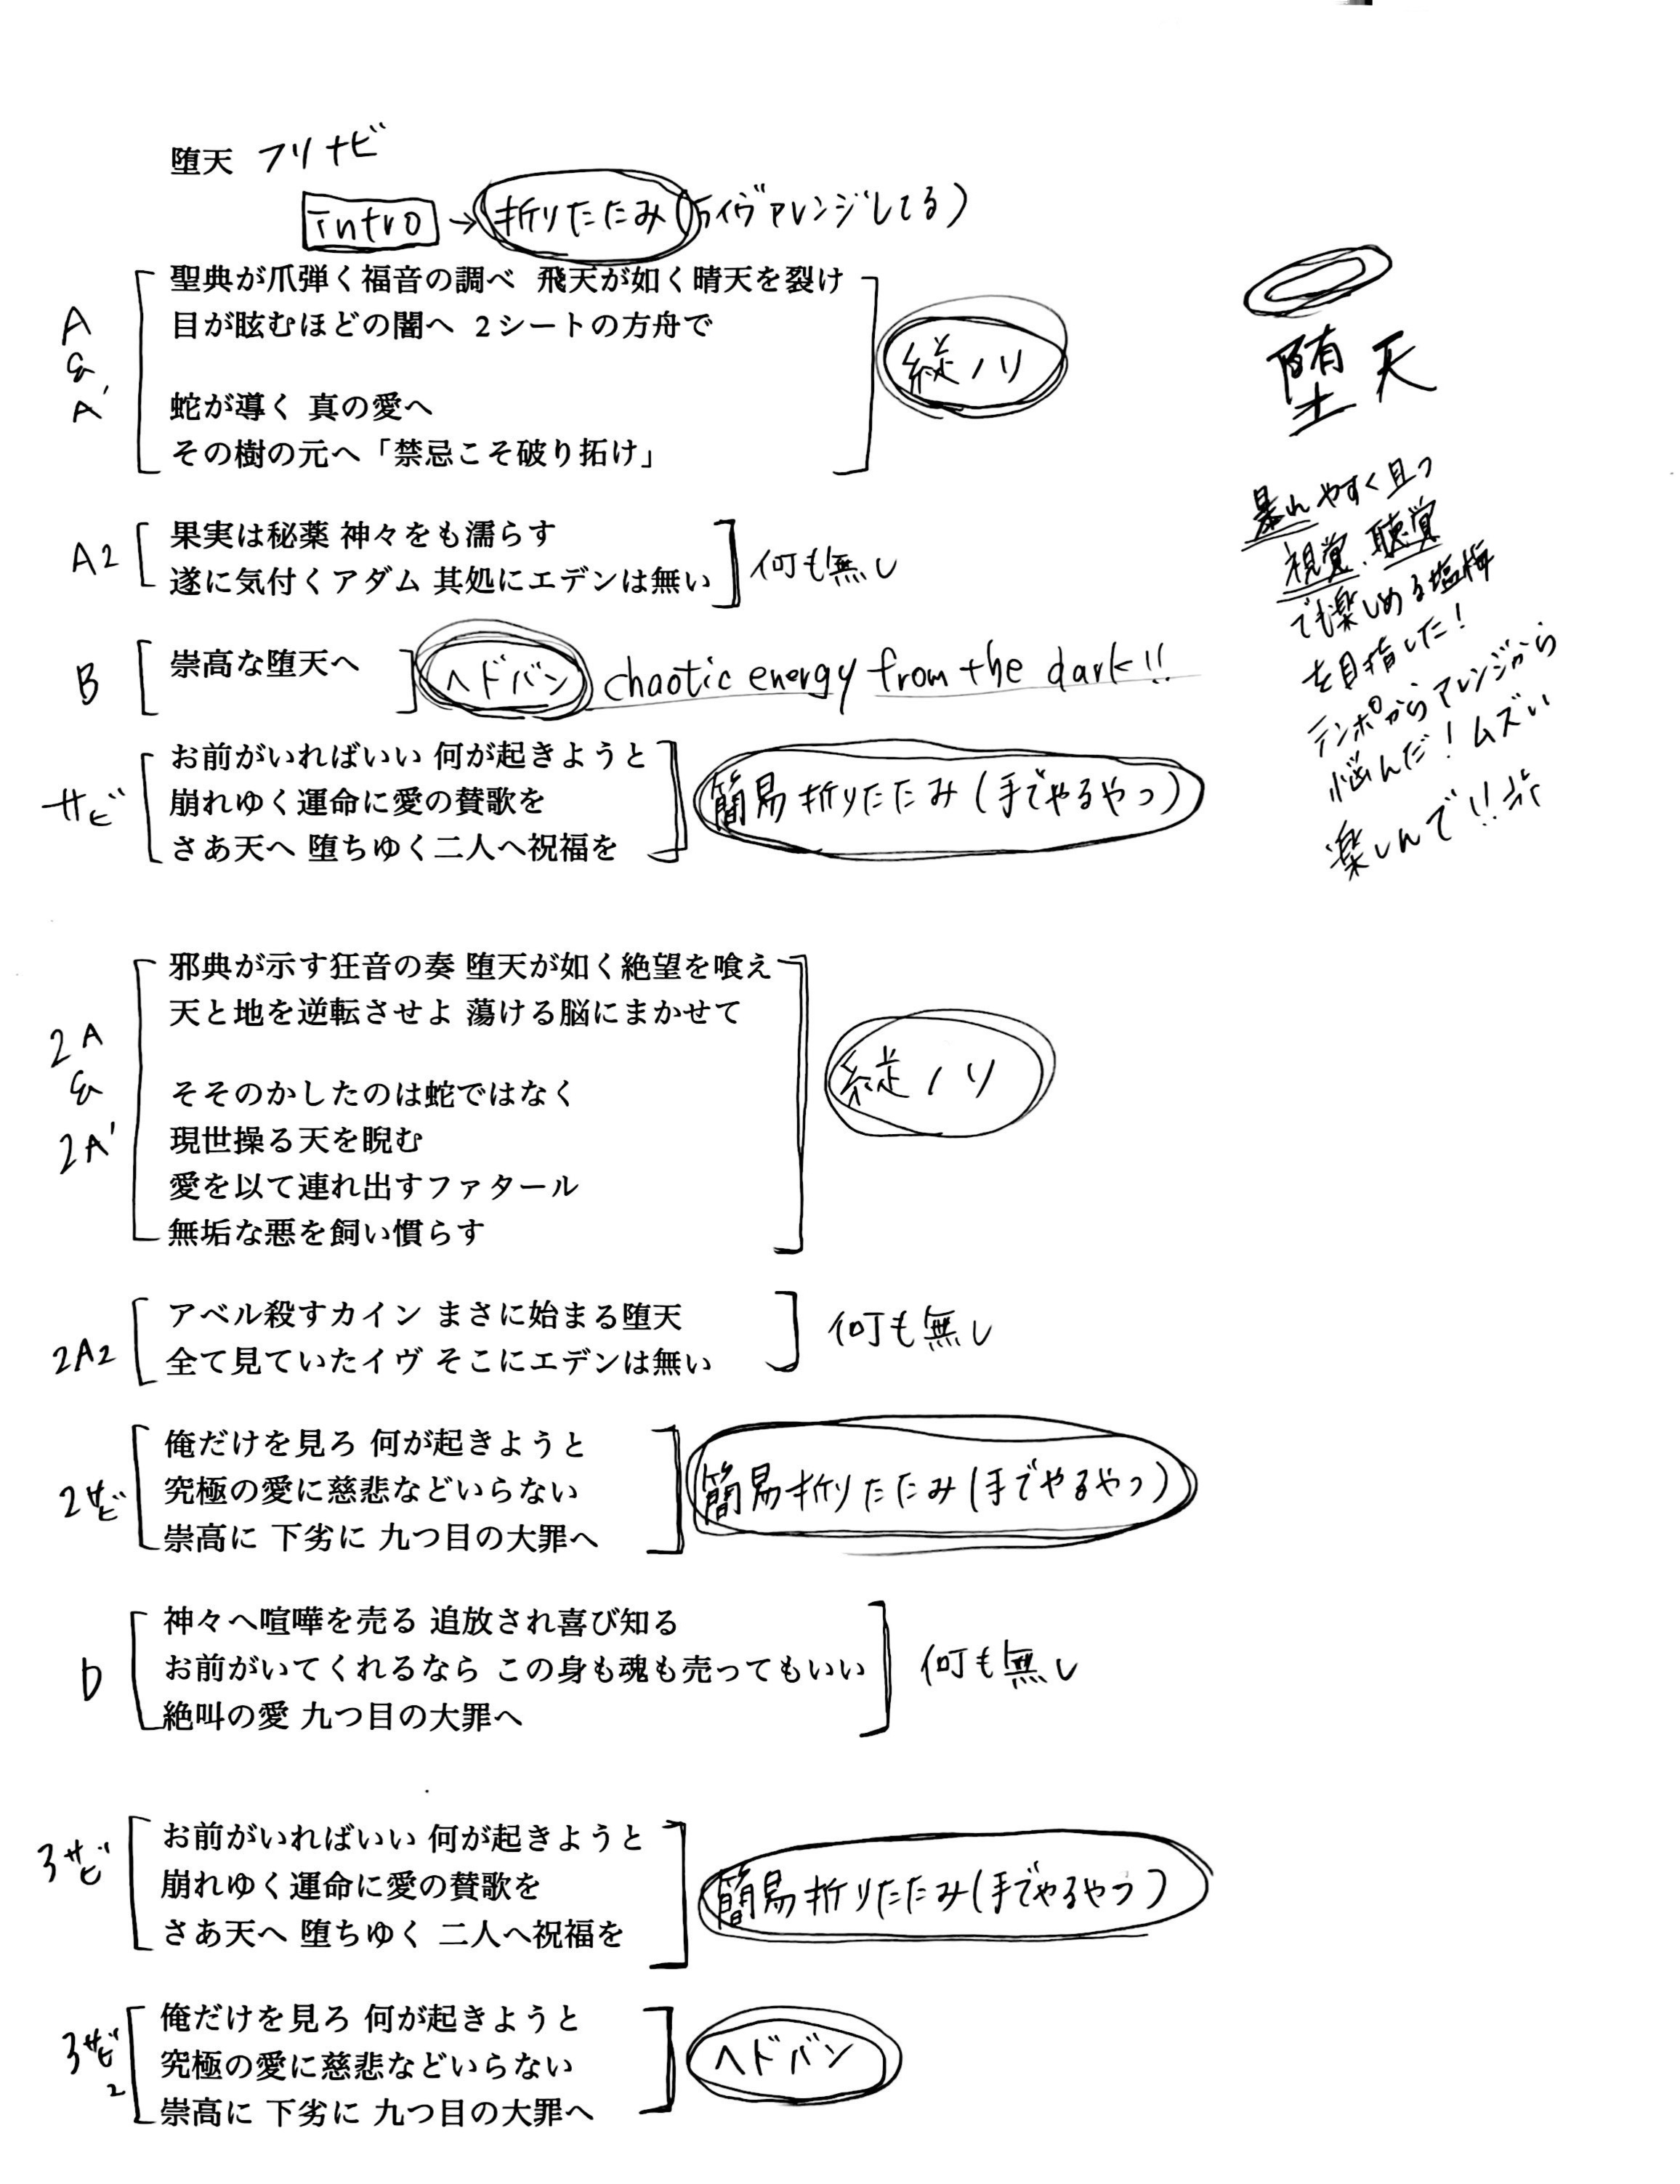 堕天 フリナビ
intro → 折りたたみ(ライヴアレンジしてる)
A & A'
聖典が爪弾く福音の調べ 飛天が如く晴天を裂け
目が眩むほどの闇へ 2シートの方舟で
蛇が導く 真の愛へ
その樹の元へ「禁忌こそ破り拓け」
縦ノリ
A2
果実は秘薬 神々をも濡らす
遂に気付くアダム 其処にエデンは無い
何も無し
B
崇高な堕天へ
ヘドバン chaotic energy from the dark!!
サビ
お前がいればいい 何が起きようと
崩れゆく運命に愛の賛歌を
さあ天へ 堕ちゆく二人へ祝福を
簡易折りたたみ(手でやるやつ)
堕天
暴れやすく且つ
視覚、聴覚
でも楽しめる塩梅
を目指した!
テンポからアレンジから
悩んだ!ムズい
楽しんで!!
2A & 2A'
邪典が示す狂音の奏 堕天が如く絶望を喰え
天と地を逆転させよ 蕩ける脳にまかせて
そそのかしたのは蛇ではなく
現世操る天を睨む
愛を以て連れ出すファタール
無垢な悪を飼い慣らす
縦ノリ
2A2
アベル殺すカイン まさに始まる堕天
全て見ていたイヴ そこにエデンは無い
何も無し
2サビ
俺だけを見ろ 何が起きようと
究極の愛に慈悲などいらない
崇高に 下劣に 九つ目の大罪へ
簡易折りたたみ(手でやるやつ)
D
神々へ喧嘩を売る 追放され喜び知る
お前がいてくれるなら この身も魂も売ってもいい
絶叫の愛 九つ目の大罪へ
何も無し
3サビ
お前がいればいい 何が起きようと
崩れゆく運命に愛の賛歌を
さあ天へ 堕ちゆく 二人へ祝福を
簡易折りたたみ(手でやるやつ)
3サビ2
俺だけを見ろ 何が起きようと
究極の愛に慈悲などいらない
崇高に 下劣に 九つ目の大罪へ
ヘドバン